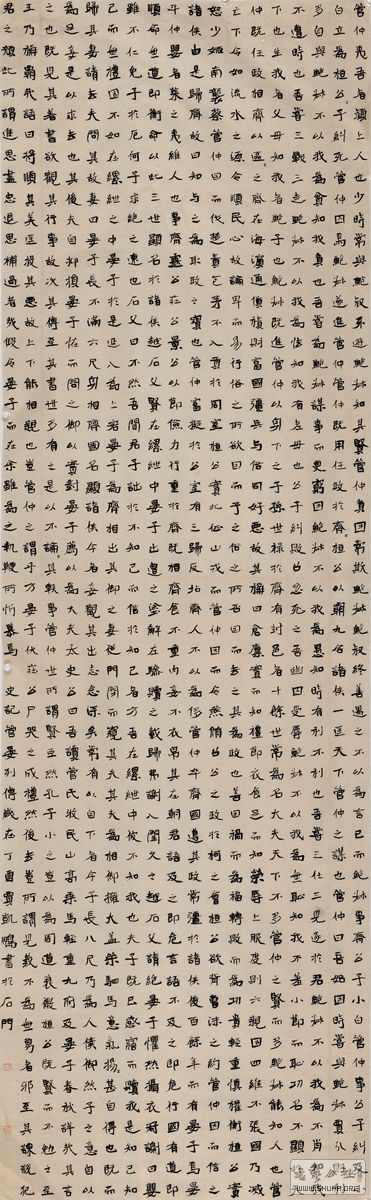 管仲夷吾者潁上人也少時常與鮑叔牙游鮑叔知其賢管仲貧困常欺鮑叔鮑叔終善遇之不以為言已而鮑叔事齊公子小白管仲事公子糾及小
白立為桓公公子糾死管仲囚焉鮑叔遂進管仲管仲既用任政於齊齊桓公以霸九合諸侯一匡天下管仲之謀也管仲曰吾始困時嘗與鮑叔賈分財利
多自與鮑叔不以我為貪知我貧也吾嘗為鮑叔謀事而更窮困鮑叔不以我為愚知時有利不利也吾嘗三仕三見逐於君鮑叔不以我為不肖知我
不遭時也吾嘗三戰三走鮑叔不以我為怯知我有老母也公子糾敗召忽死之吾幽囚受辱鮑叔不以我為無恥知我不羞小節而恥功名不顯于天下
也生我者父母知我者鮑子也鮑叔既進管仲以身下之子孫世祿於齊有封邑者十餘世常為名大夫天下不多管仲之賢而多鮑叔能知人也管
仲既任政相齊以區區之齊在海濱通貨積財富國彊兵與俗同好惡故其稱曰倉廩實而知禮節衣食足而知榮辱上服度則六親固四維不張國乃滅亡
下令如流水之源令順民心故論卑而易行俗之所欲因而予之俗之所否因而去之其為政也善因禍而為福轉敗而為功貴輕重慎權衡桓公實
怒少姬南襲蔡管仲因而伐楚責包茅不入貢於周室桓公實北征山戎而管仲因而令燕修召公之政於柯之會桓公欲背曹沫之約管仲因而信之
諸侯由是歸齊故曰知與之為取政之寶也管仲富擬於公室有三歸反坫齊人不以為侈管仲卒齊國遵其政常彊於諸侯後百餘年而有晏子焉晏平
仲嬰者萊之夷維人也事齊靈公莊公景公以節儉力行重於齊既相齊食不重肉妾不衣帛其在朝君語及之即危言語不及之即危行國有道即
順命無道即衡命以此三世顯名於諸侯越石父賢在縲紲中晏子出遭之塗解左驂贖之載歸弗謝入閨久之越石父請絕晏子懼然攝衣冠謝曰嬰
雖不仁免子於厄何子求絕之速也石父曰不然吾聞君子詘於不知己而信於知己者方吾在縲紲中彼不知我也夫子既已感寤而贖我是知己知
己而無禮固不如在縲紲之中晏子於是延入為上客晏子為齊相出其御之妻從門間而闚其夫其夫為相御擁大蓋策駟馬意氣揚揚甚自得也既而
歸其妻請去夫問其故妻曰晏子長不滿六尺身相齊國名顯諸侯今者妾觀其出志念深矣常有以自下者今子長八尺乃為人僕御然子之意自以
為足妾是以求去也其後夫自抑損晏子怪而問之御以實對晏子薦以為大夫太史公曰吾讀管氏牧民山高乘馬輕重九府及晏子春秋詳哉其言
之也既見其著書欲觀其行事故次其傳至其書世多有之是以不論論其軼事管仲世所謂賢臣然孔子小之豈以為周道衰微桓公既賢而不勉之至
王乃稱霸哉語曰將順其美匡救其惡故上下能相親也豈管仲之謂乎方晏子伏莊公尸哭之成禮然後去豈所謂見義不為無勇者邪至其諫說犯
君之顏此所謂進思盡忠退思補過者哉假令晏子而在余雖為之執鞭所忻慕焉 史記管晏列傳歲在丁酉賈凱鵬書於石門